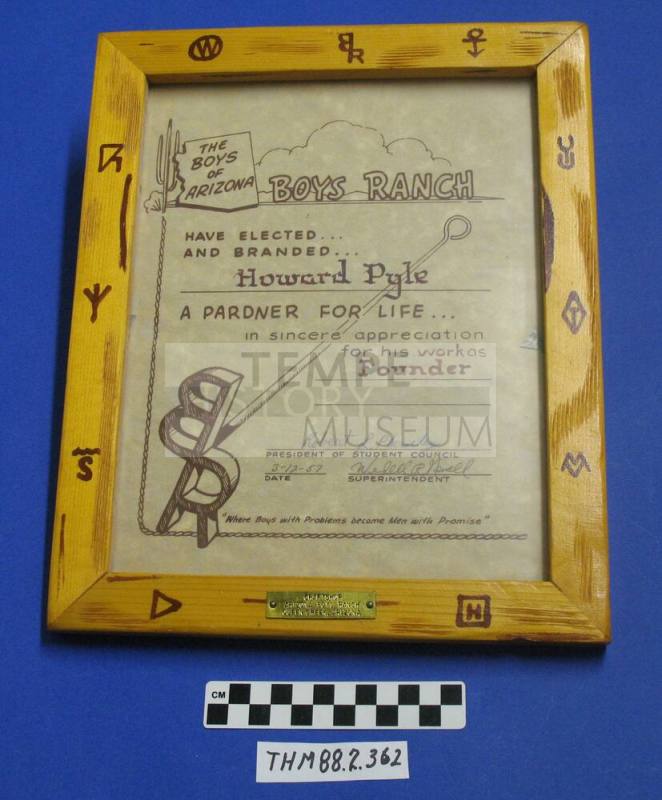 THE
BOYS
OF
ARIZONA
BOYS RANCH
HAVE ELECTED...
AND BRANDED...
Howard Pyle
A PARDNER FOR LIFE...
in sincere appreciation
for his work as
Founder
TEMPE
HISTORY
MUSEUM
PRESIDENT OF STUDENT COUNCIL
3-12-57
DATE
SUPERINTENDENT
"Where Boys with Problems become Men with Promise"
BOYS RANCH
ARIZONA
CM
THM88.2.362